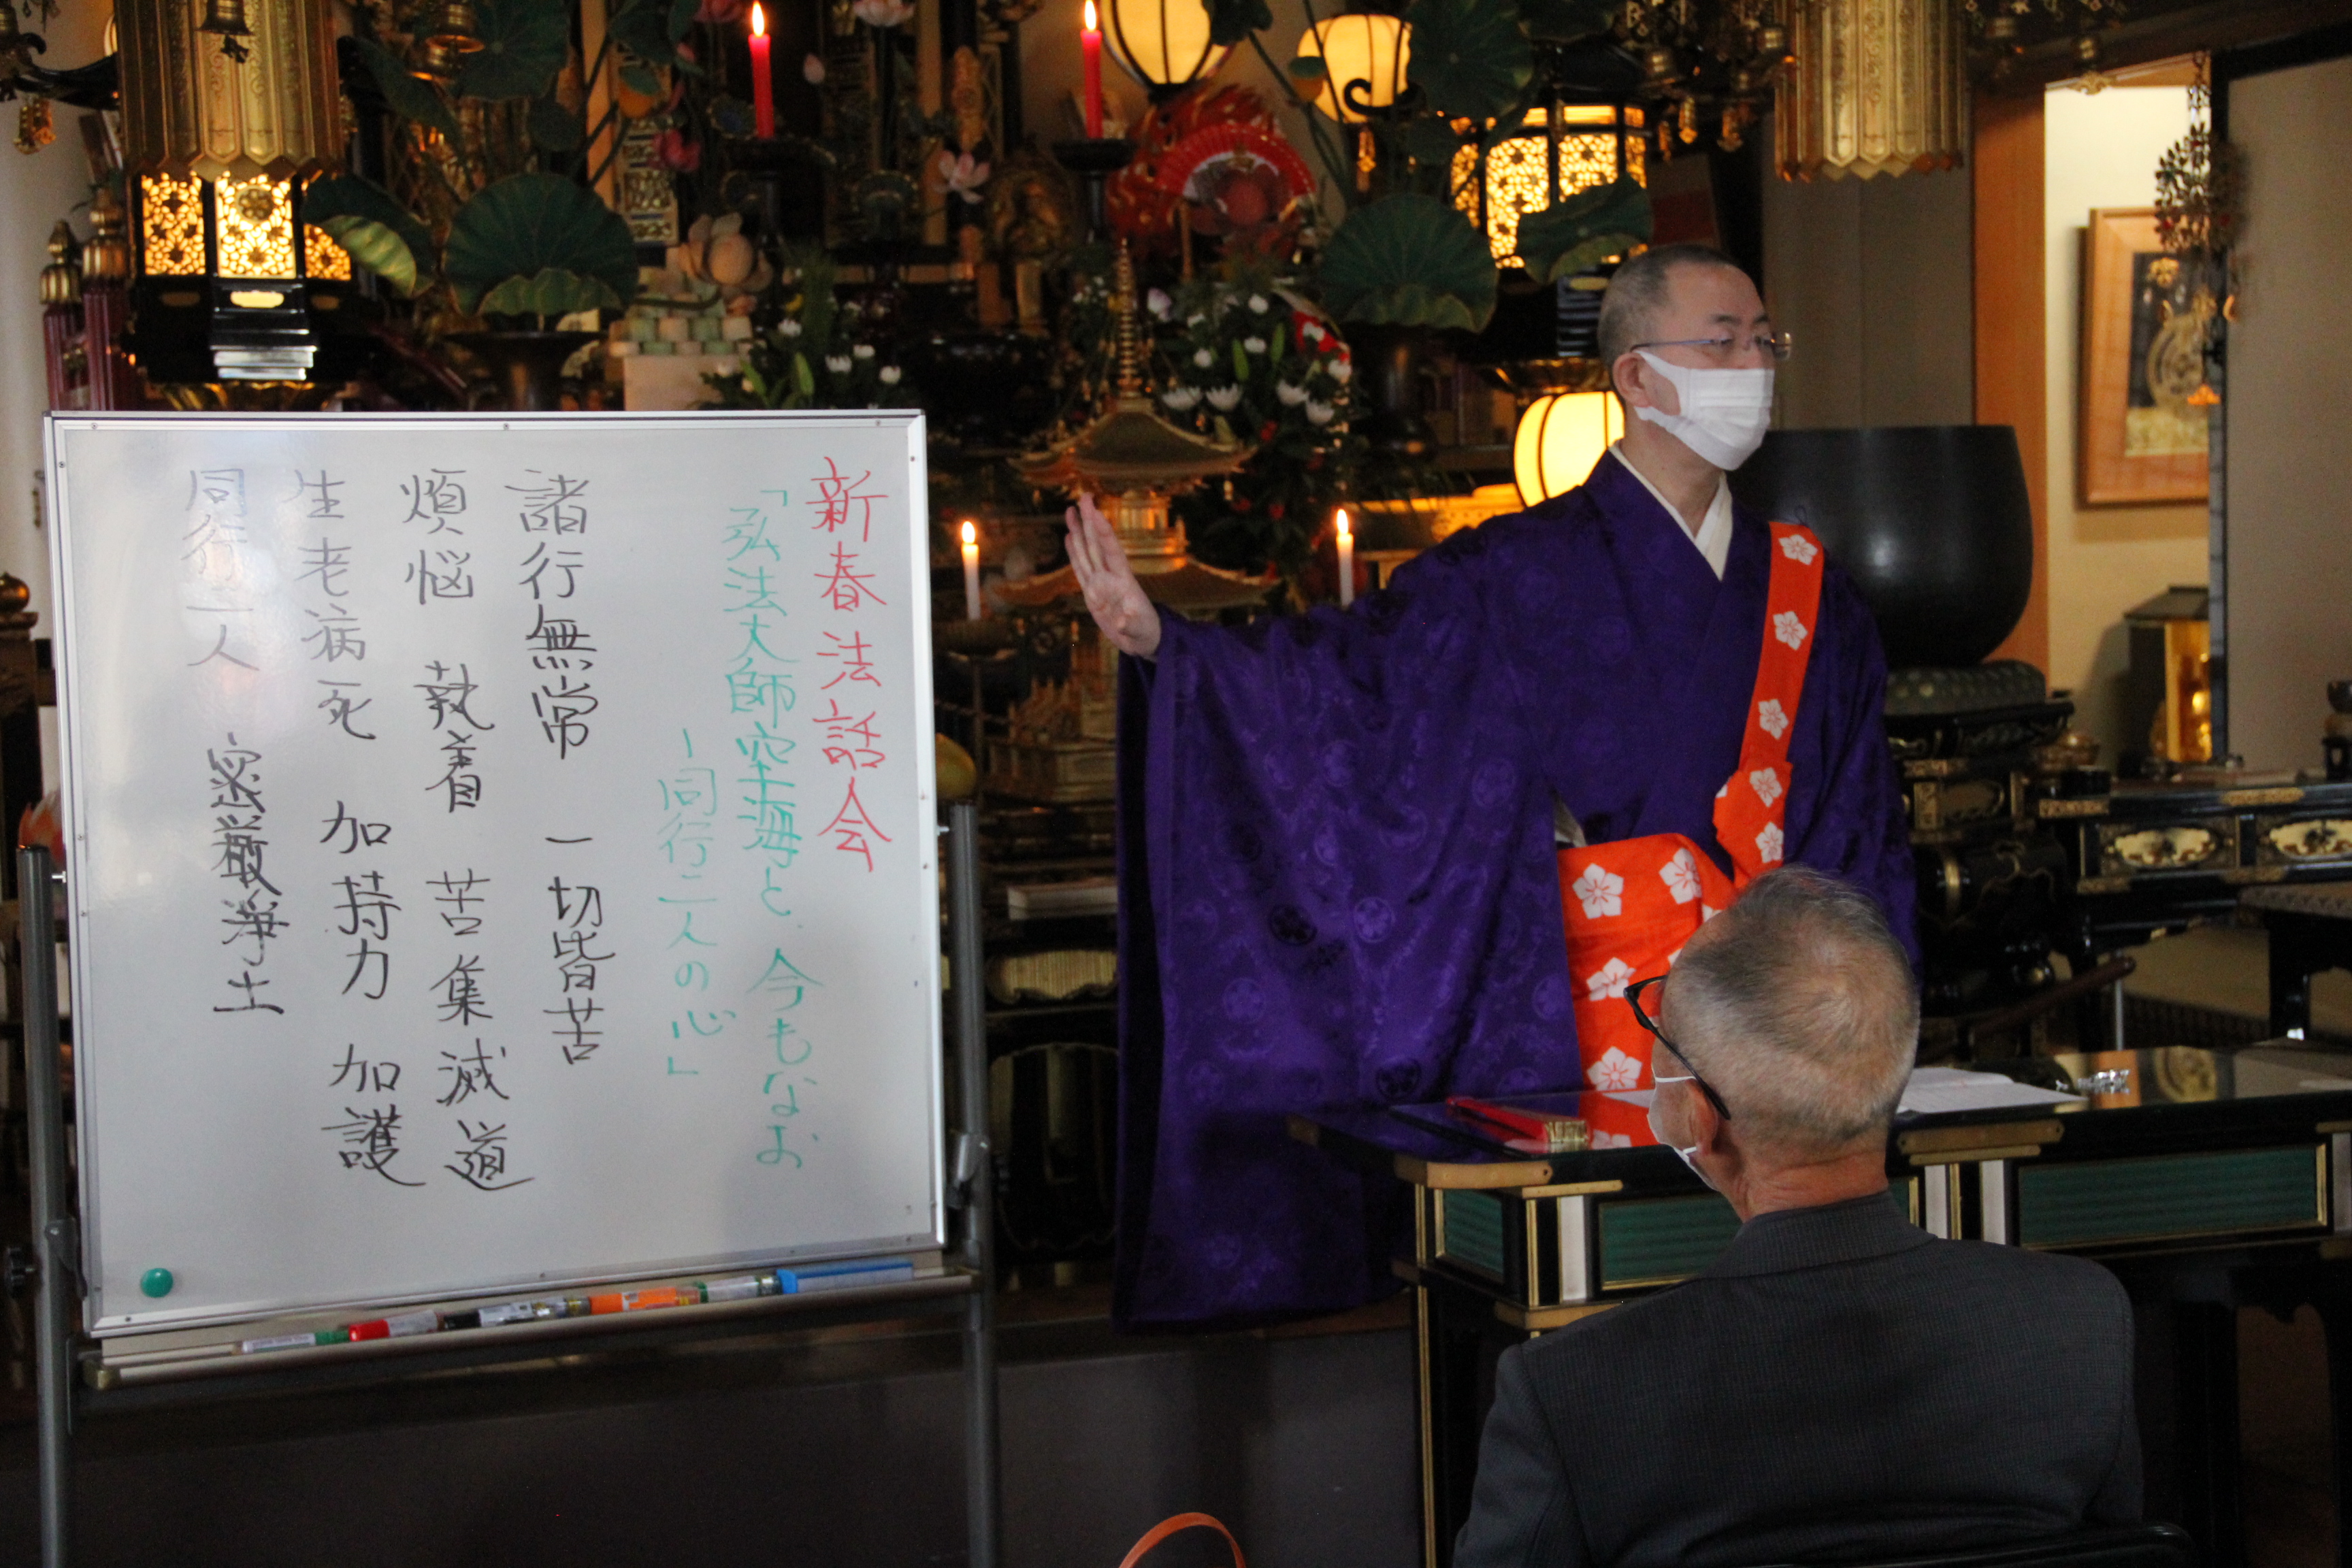 新春法話会
「弘法大師空海と、今もなお
ー同行二人の心」
諸行無常 一切皆苦
煩悩 執着 苦集滅道
生老病死 加持力 加護
同行二人 密厳浄土